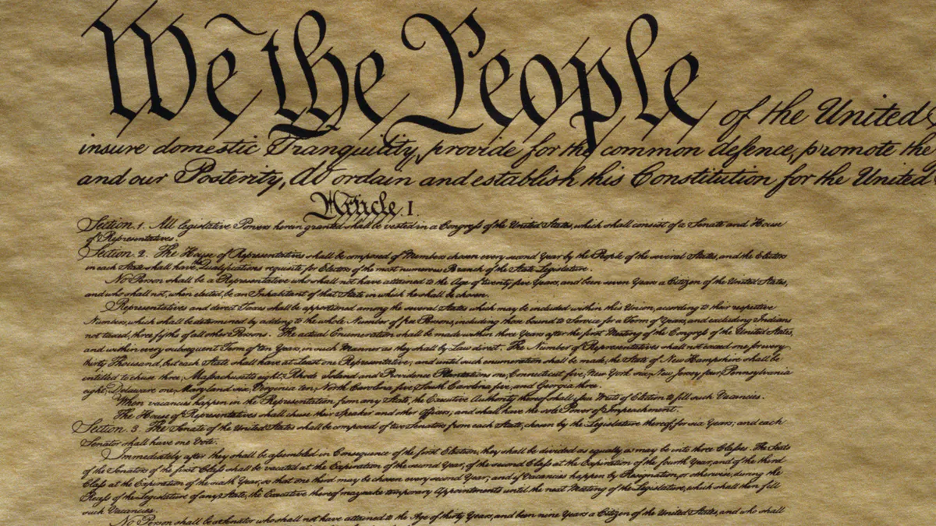 We the People of the United
insure domestic Tranquility, provide for the common defence, promote the
and our Posterity, do ordain and establish this Constitution for the United
Article. I.
Section. 1. All legislative Powers herein granted shall be vested in a Congress of the United States, which shall consist of a Senate and House
of Representatives.
Section. 2. The House of Representatives shall be composed of Members chosen every second Year by the People of the several States, and the Electors
in each State shall have Qualifications requisite for Electors of the most numerous Branch of the State Legislature.
No Person shall be a Representative who shall not have attained to the Age of twenty five Years, and been seven Years a Citizen of the United States,
and who shall not, when elected, be an Inhabitant of that State in which he shall be chosen.
Representatives and direct Taxes shall be apportioned among the several States which may be included within this Union, according to their respective
Numbers, which shall be determined by adding to the whole Number of free Persons, including those bound to Service for a Term of Years, and excluding Indians
not taxed, three fifths of all other Persons. The actual Enumeration shall be made within three Years after the first Meeting of the Congress of the United States,
and within every subsequent Term of ten Years, in such Manner as they shall by Law direct. The Number of Representatives shall not exceed one for every
thirty Thousand, but each State shall have at Least one Representative; and until such enumeration shall be made, the State of New Hampshire shall be
entitled to chuse three, Massachusetts eight, Rhode Island and Providence Plantations one, Connecticut five, New York six, New Jersey four, Pennsylvania
eight, Delaware one, Maryland six, Virginia ten, North Carolina five, South Carolina five, and Georgia three.
When vacancies happen in the Representation from any State, the Executive Authority thereof shall issue Writs of Election to fill such Vacancies.
The House of Representatives shall chuse their Speaker and other Officers; and shall have the sole Power of Impeachment.
Section. 3. The Senate of the United States shall be composed of two Senators from each State, chosen by the Legislature thereof, for six Years; and each
Senator shall have one Vote.
Immediately after they shall be assembled in Consequence of the first Election, they shall be divided as equally as may be into three Classes. The Seats
of the Senators of the first Class shall be vacated at the Expiration of the second Year, of the second Class at the Expiration of the fourth Year, and of the third
Class at the Expiration of the sixth Year, so that one third may be chosen every second Year; and if Vacancies happen by Resignation, or otherwise, during the
Recess of the Legislature of any State, the Executive thereof may make temporary Appointments until the next Meeting of the Legislature, which shall then fill
such Vacancies.
No Person shall be a Senator who shall not have attained to the Age of thirty Years, and been nine Years a Citizen of the United States, and who shall